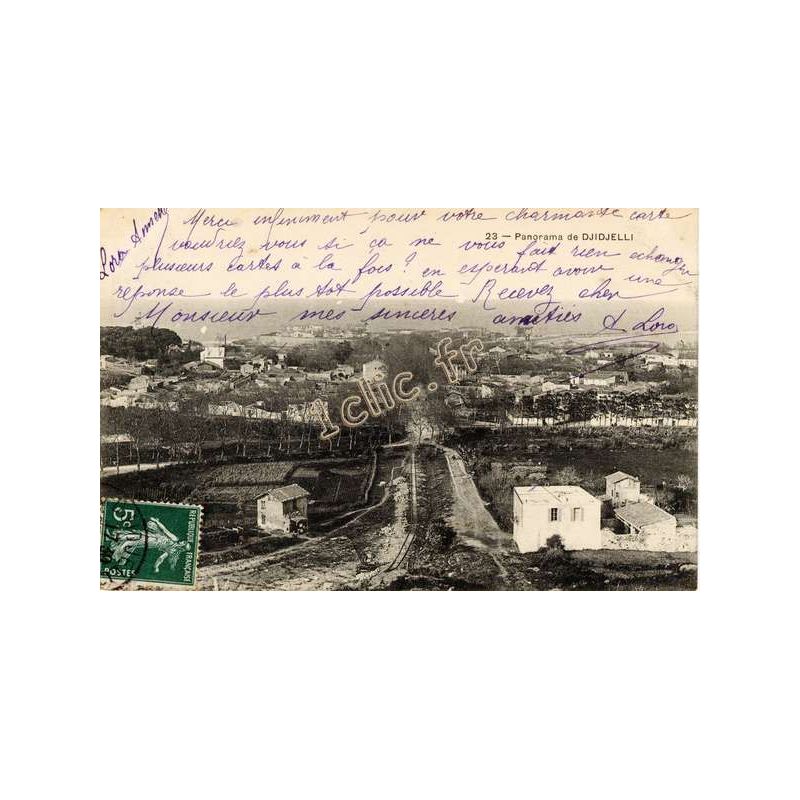 Merci infiniment pour votre charmante carte
23 — Panorama de DJIDJELLI
voudriez vous si ça ne vous fait rien echanger
plusieurs cartes à la fois? en esperant avoir une
réponse le plus tot possible Recevez cher
Monsieur mes sincères amitiés
Lora
Lora
1clic.fr
5c
REPUBLIQUE FRANÇAISE
POSTES